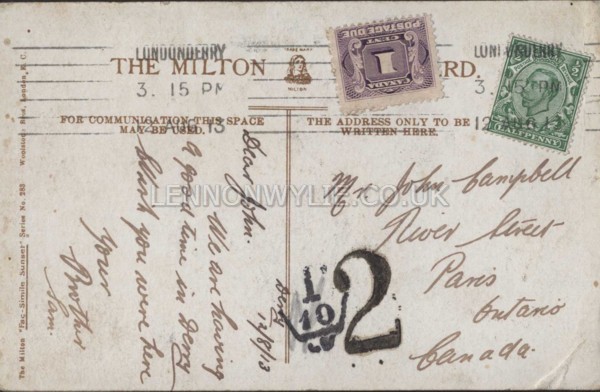 LONDONDERRY
3. 15 PM
12 AUG 13
LONDONDERRY
3. 15 PM
12 AUG 13
THE MILTON
MILTON
RD,
POSTAGE DUE
1
CANADA
CENT
1/2
HALFPENNY
FOR COMMUNICATION THIS SPACE
MAY BE USED.
THE ADDRESS ONLY TO BE
WRITTEN HERE.
LENNONWYLIE.CO.UK
Derry
12/8/13
Dear John.
We are having
a good time in Derry
Wish you were here
Your
Brother
Sam.
Mr John Campbell
River Street
Paris
Ontario
Canada.
1
10
2
The Milton "Fac-Simile Sunset" Series No. 353 Woolstone Bros. London, E.C.